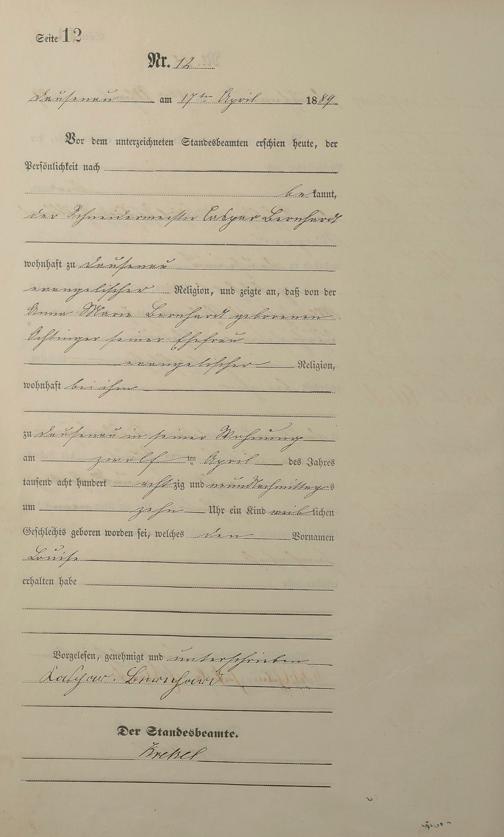 Seite 12
Nr. 12
Dausenau am 17ten April 1889
Vor dem unterzeichneten Standesbeamten erschien heute, der
Persönlichkeit nach
be kannt,
der Schneidermeister Caspar Bernhardt
wohnhaft zu Dausenau
evangelischer Religion, und zeigte an, daß von der
Anna Marie Bernhardt geborenen
seiner Ehefrau
evangelischer Religion,
wohnhaft bei ihm
zu Dausenau in seiner Wohnung
am zwölf ten April des Jahres
tausend acht hundert acht zig und neun Nachmittags
um zehn Uhr ein Kind weib lichen
Geschlechts geboren worden sei, welches den Vornamen
Louise
erhalten habe
Vorgelesen, genehmigt und unterschrieben
Caspar. Bernhard
Der Standesbeamte.